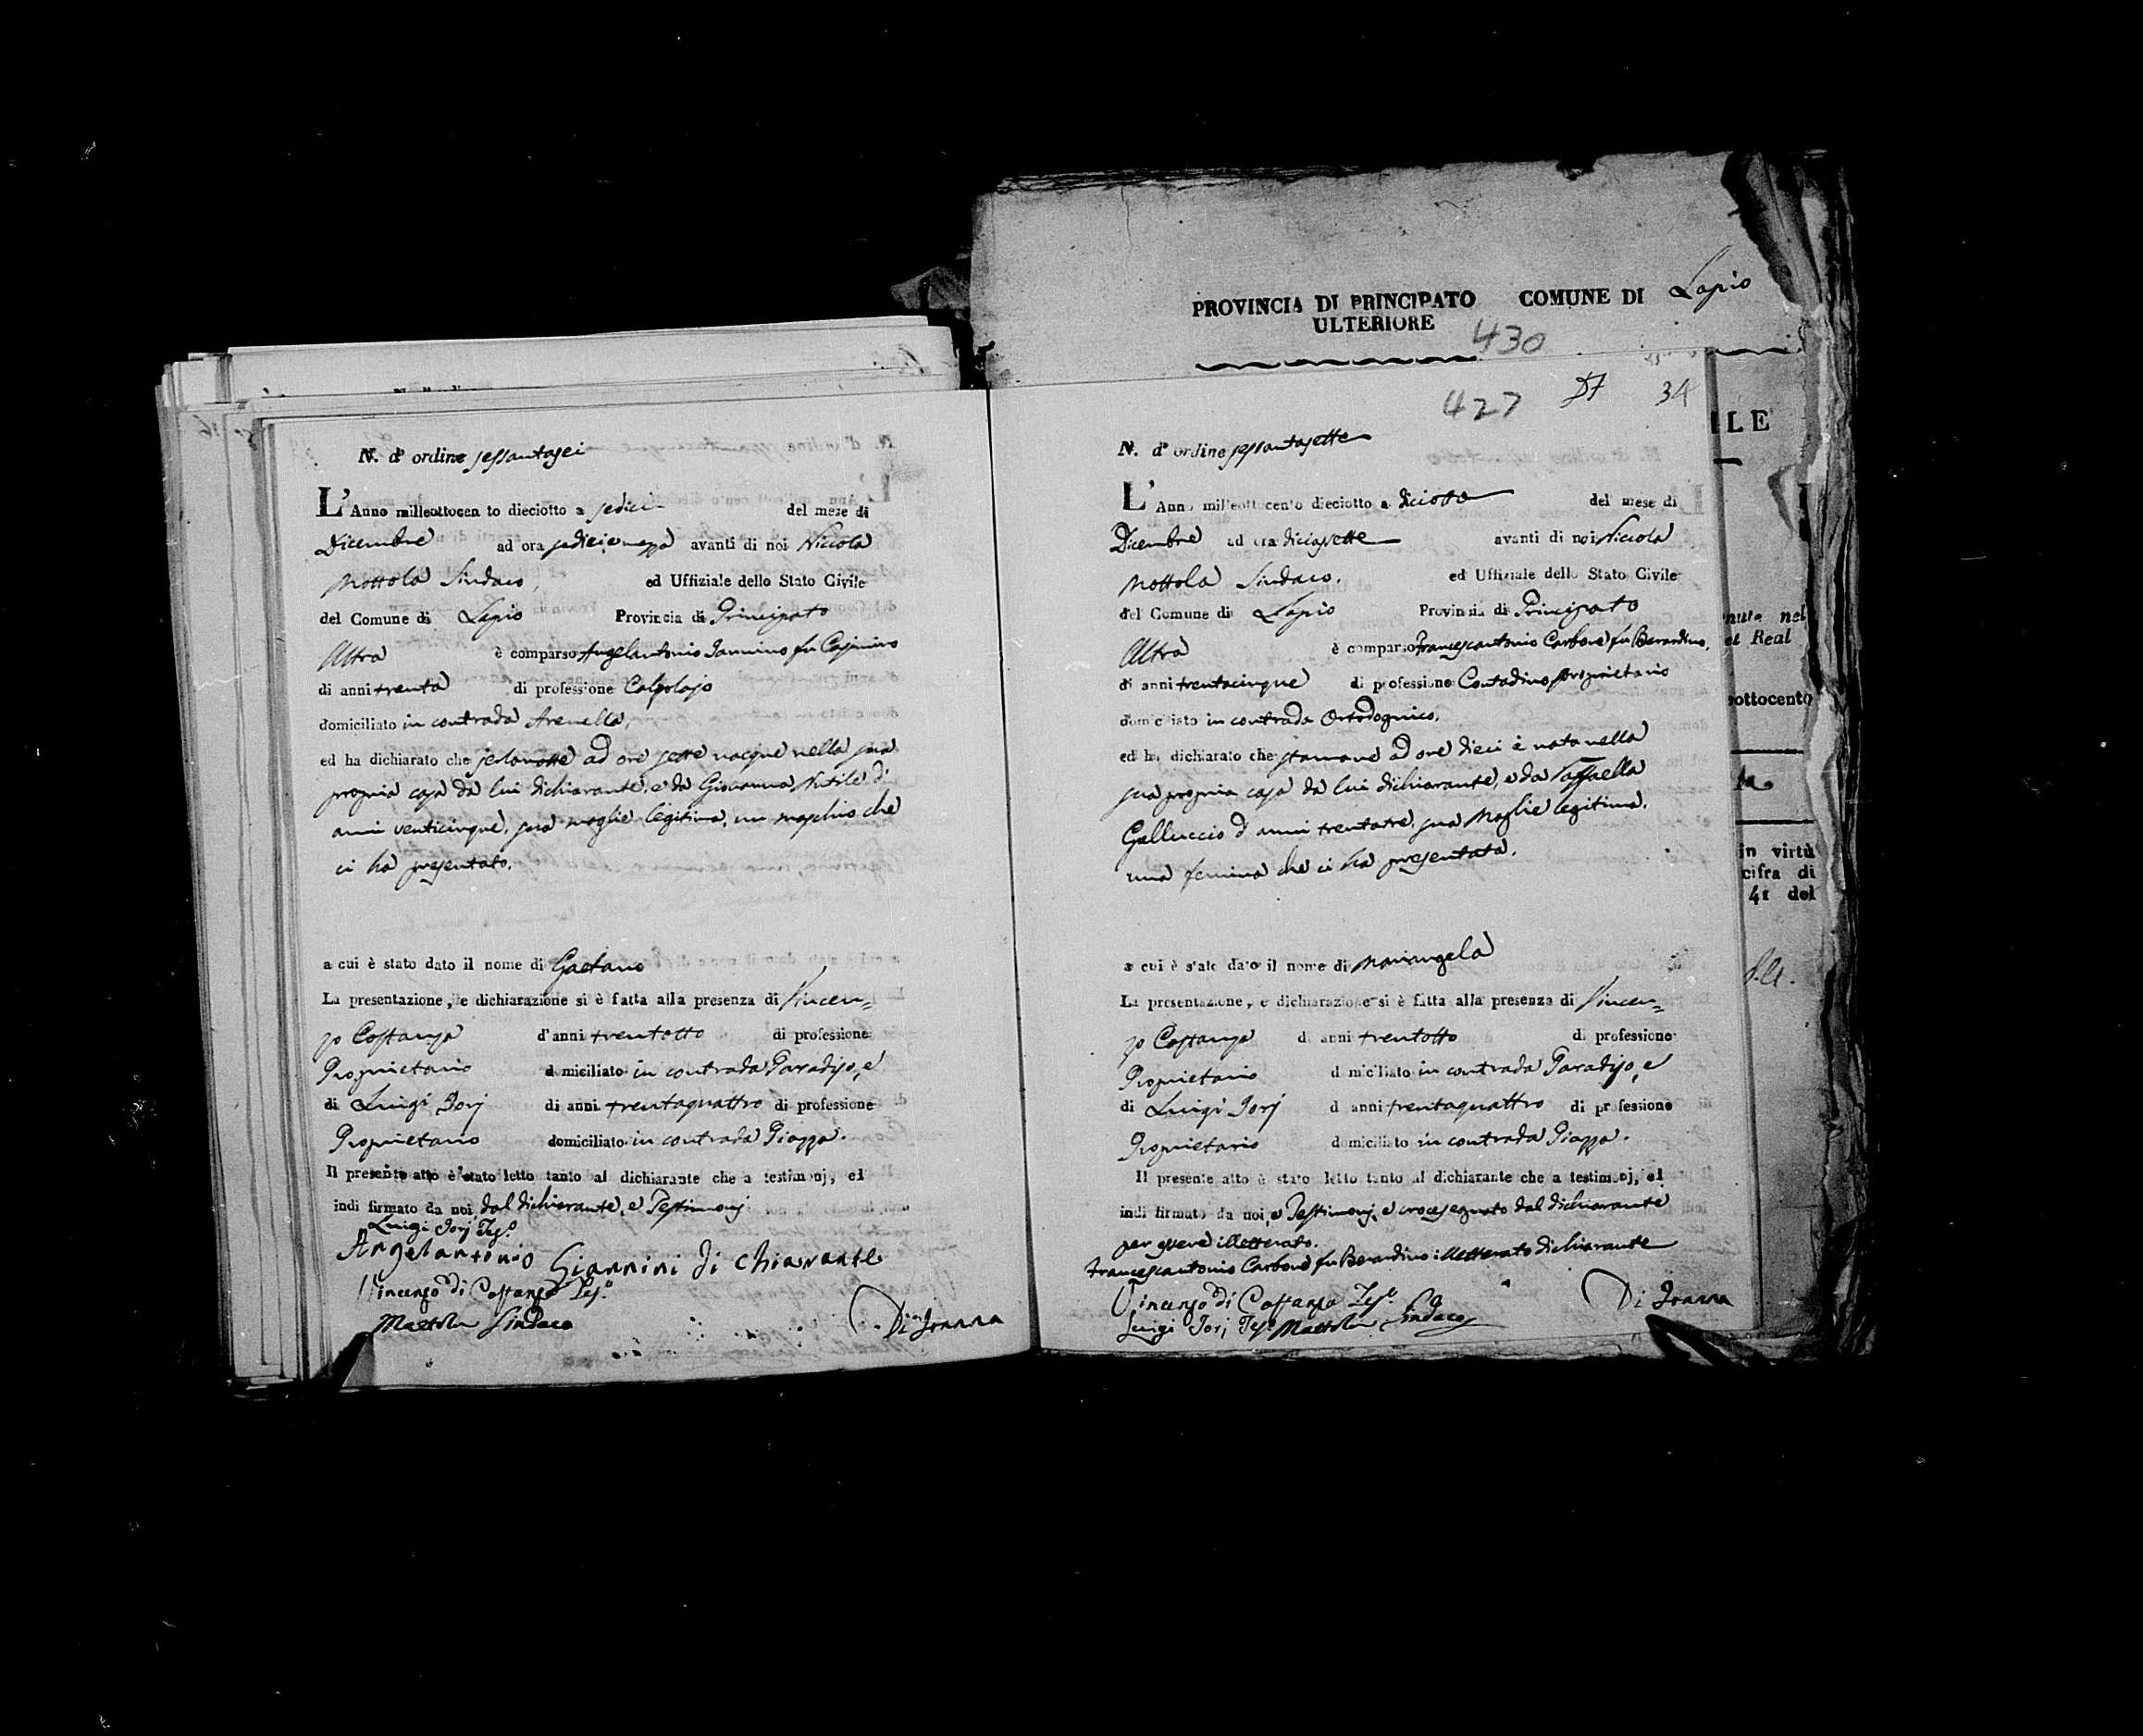 PROVINCIA DI PRINCIPATO COMUNE DI Lapio
ULTERIORE
430
N. d'ordine sessantasei
L'Anno milleottocento dieciotto a sedici del mese di
Dicembre ad ora sedicie mezza avanti di noi Niccola
Mottola Sindaco, ed Uffiziale dello Stato Civile
del Comune di Lapio Provincia di Principato
Ultra è comparso Angelantonio Iannino fu Casimiro
di anni trenta di professione Calzolajo
domiciliato in contrada Arenella,
ed ha dichiarato che ad ore sette nacque nella sua
propria casa da lui dichiarante, e da Giovanna Nutile di
anni venticinque, sua moglie legitima, un maschio che
ci ha presentato.
a cui è stato dato il nome di Gaetano
La presentazione, e dichiarazione si è fatta alla presenza di Vincen=
zo Costanza d'anni trentotto di professione
Proprietario domiciliato in contrada Paradiso, e
di Luigi Iorj di anni trentaquattro di professione
Proprietario domiciliato in contrada Piazza.
Il presente atto è stato letto tanto al dichiarante che a testimonj, ei
indi firmato da noi dal dichiarante, e Testimonj
Luigi Iorj Tes.o
Angelantonio Giannini di chiarante
Vincenzo di Costanzo Tes.o
Sindaco
Di Ioanna
427 34
N. d'ordine sessantasette
L'Anno milleottocento dieciotto a diciotto del mese di
Dicembre ad ora diciasette avanti di noi Niccola
Mottola Sindaco. ed Uffiziale dello Stato Civile
del Comune di Lapio Provincia di Principato
Ultra è comparso Francescantonio Carbone fu Berardino,
di anni trentacinque di professione Contadino proprietario
domiciliato in contrada Ortodognico,
ed ha dichiarato che stamane ad ore dieci è nata nella
sua propria casa da lui dichiarante, e da Raffaella
Galluccio d'anni trentatre, sua Moglie legitima,
una femina che ci ha presentata.
a cui è stato dato il nome di Mariangela
La presentazione, e dichiarazione si è fatta alla presenza di Vincen=
zo Costanza di anni trentotto di professione
Proprietario domiciliato in contrada Paradiso, e
di Luigi Iorj di anni trentaquattro di professione
Proprietario domiciliato in contrada Piazza.
Il presente atto è stato letto tanto al dichiarante che a testimonj, ei
indi firmato da noi, e Testimonj, e crocesegnato dal dichiarante
per essere illetterato.
Francescantonio Carbone fu Berardino illetterato dichiarante
Vincenzo di Costanzo Tes.o
Luigi Iorj Tes.o Sindaco
Di Ioanna
ILE
nute nel
et Real
sottocento
in virtù
cifra di
41 del